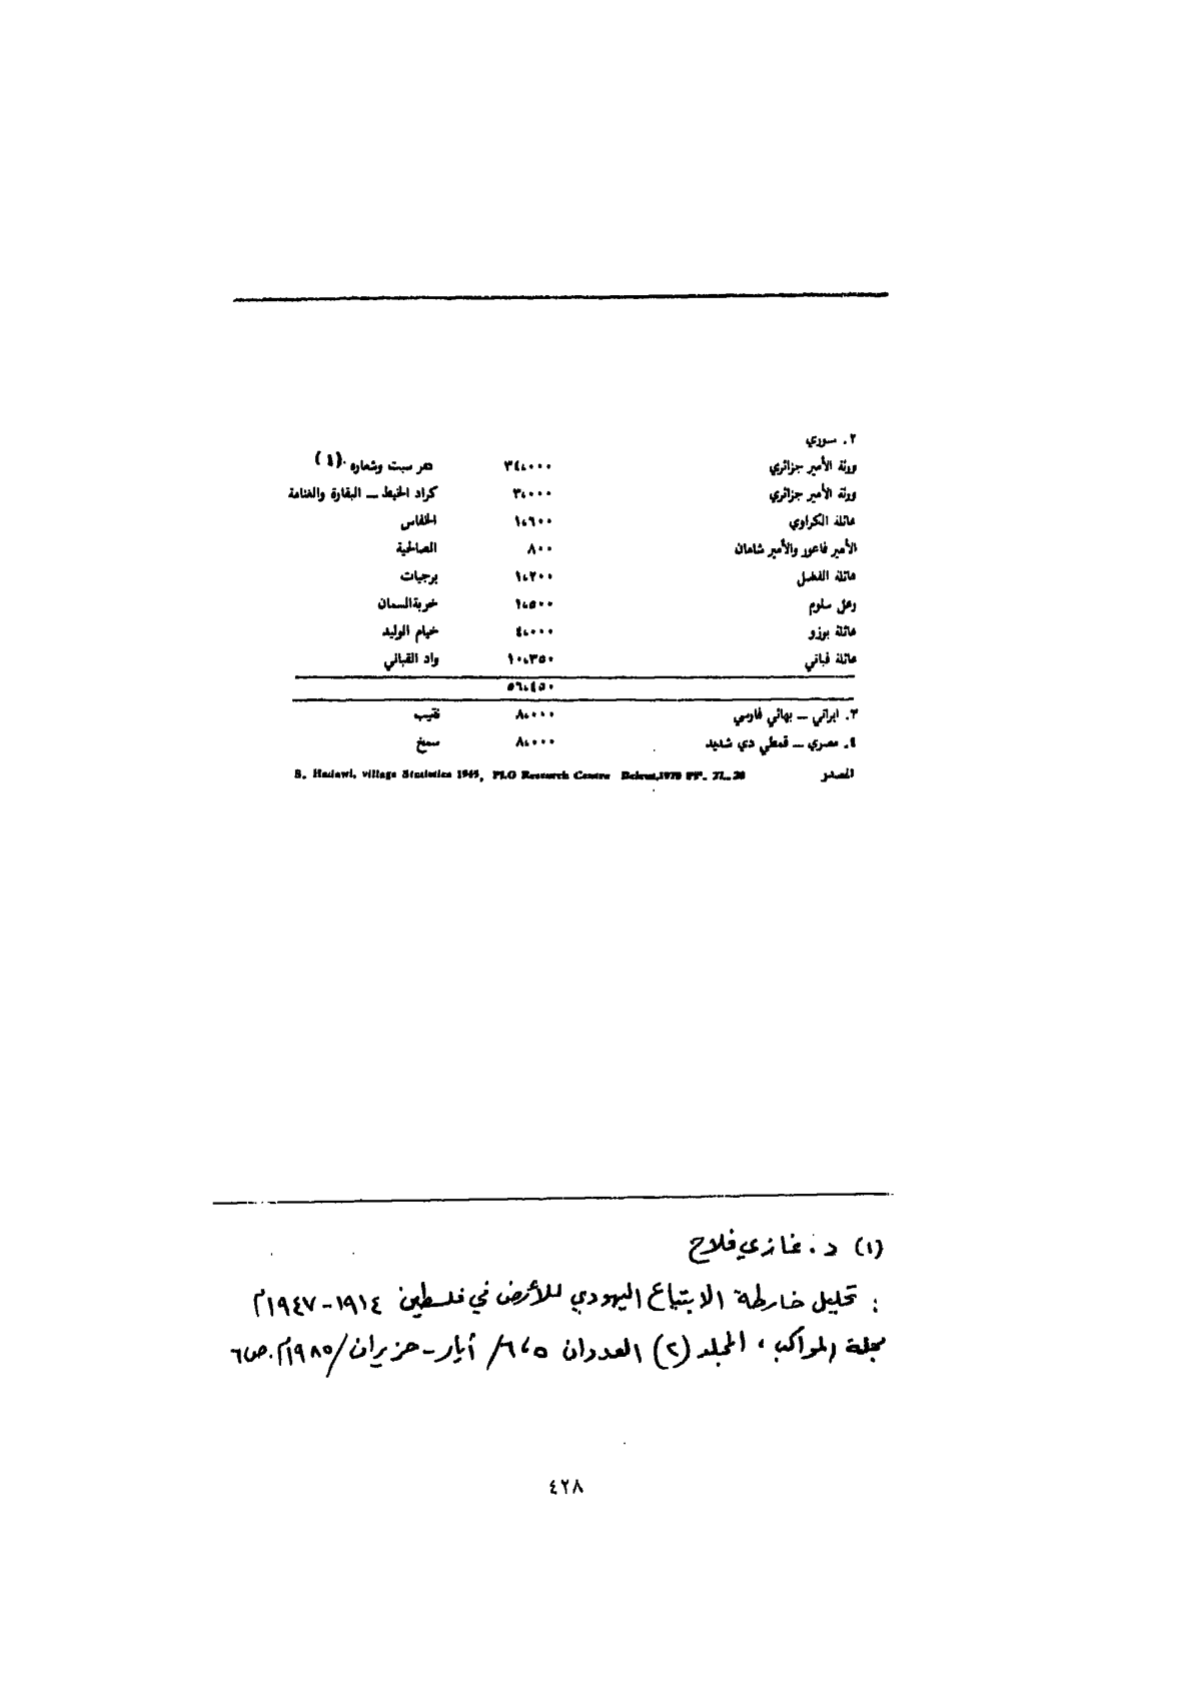 ٢. سوري
ورثة الأمير جزائري ٣٤،٠٠٠ كفر سبت وشعاره (١)
ورثة الأمير جزائري ٣،٠٠٠ كراد الخيط ــ البقارة والغنامة
عائلة الكراوي ١،٦٠٠ الخفاس
الأمير فاعور والأمير شاهان ٨٠٠ الصالحية
عائلة الفضل ١،٢٠٠ برجيات
وعل سلوم ١،٥٠٠ خربة السمان
عائلة بوزو ٤،٠٠٠ خيام الوليد
عائلة قباني ١٠،٣٥٠ واد القباني
٥٦،٤٥٠
٣. ايراني ــ بهائي فارسي ٨،٠٠٠ نقيب
٤. مصري ــ قمطي دي شديد ٨،٠٠٠ سمخ
المصدر S. Hadawi, village Statistics 1945, PLO Research Centre Beirut,1970 PP. 27-28
(١) د. غازي فلاح
: تحليل خارطة الابتياع اليهودي للأرض في فلسطين ١٩١٤-١٩٤٧م
مجلة المواكب، المجلد (٢) العددان ٥،٦/ أيار-حزيران/١٩٨٥م. ص٦
٤٢٨